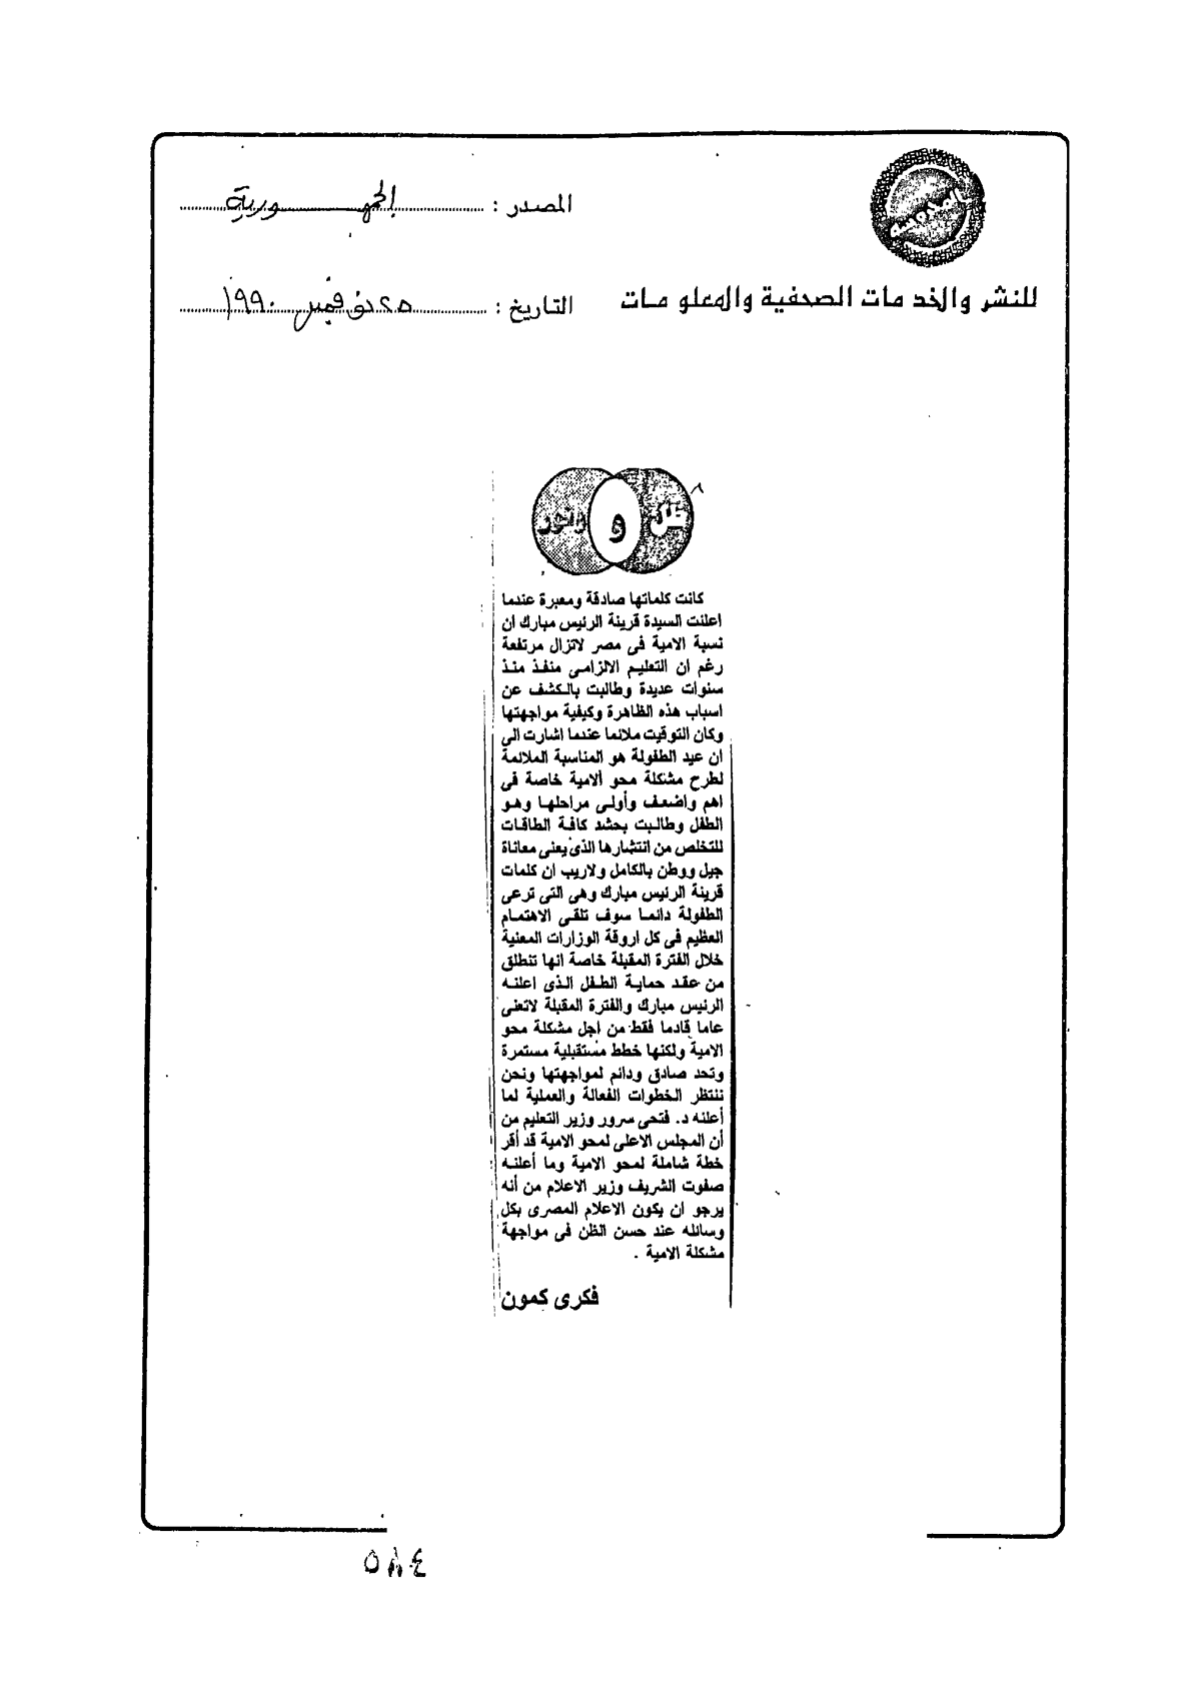 المصدر : الجمهورية
للنشر والخدمات الصحفية والمعلومات
التاريخ : ٢٥ نوفمبر ١٩٩٠
و
كانت كلماتها صادقة ومعبرة عندما
اعلنت السيدة قرينة الرئيس مبارك ان
نسبة الامية فى مصر لاتزال مرتفعة
رغم ان التعليم الالزامى منفذ منذ
سنوات عديدة وطالبت بالكشف عن
اسباب هذه الظاهرة وكيفية مواجهتها
وكان التوقيت ملائما عندما اشارت الى
ان عيد الطفولة هو المناسبة الملائمة
لطرح مشكلة محو الامية خاصة فى
اهم واضعف وأولى مراحلها وهو
الطفل وطالبت بحشد كافة الطاقات
للتخلص من انتشارها الذى يعنى معاناة
جيل ووطن بالكامل ولاريب ان كلمات
قرينة الرئيس مبارك وهى التى ترعى
الطفولة دائما سوف تلقى الاهتمام
العظيم فى كل اروقة الوزارات المعنية
خلال الفترة المقبلة خاصة انها تنطلق
من عقد حماية الطفل الذى اعلنه
الرئيس مبارك والفترة المقبلة لاتعنى
عاما قادما فقط من اجل مشكلة محو
الامية ولكنها خطط مستقبلية مستمرة
وتحد صادق ودائم لمواجهتها ونحن
ننتظر الخطوات الفعالة والعملية لما
أعلنه د. فتحى سرور وزير التعليم من
أن المجلس الاعلى لمحو الامية قد أقر
خطة شاملة لمحو الامية وما أعلنه
صفوت الشريف وزير الاعلام من أنه
يرجو ان يكون الاعلام المصرى بكل
وسائله عند حسن الظن فى مواجهة
مشكلة الامية .
فكرى كمون
٥٨٤